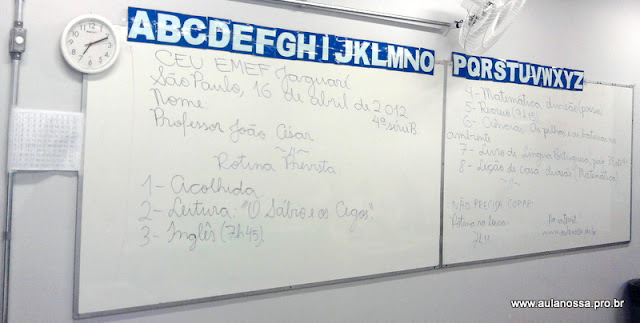 ABCDEFGHIJKLMNO
PQRSTUVWXYZ
CEU EMEF Jaguaré
São Paulo, 16 de abril de 2012
Nome 4ª série B
Professor João César
Rotina Prevista
1- Acolhida
2- Leitura: "O Sábio e os Cegos".
3- Inglês (7h45).
4- Matemática: divisão
5- Recreio (9h)
6- Ciências: As pilhas e as baterias no
ambiente
7- Livro de Língua Portuguesa, pág.
8- Lição de casa: divisão (Matemática)
NÃO PRECISA COPIAR:
www.aulanossa.pro.br